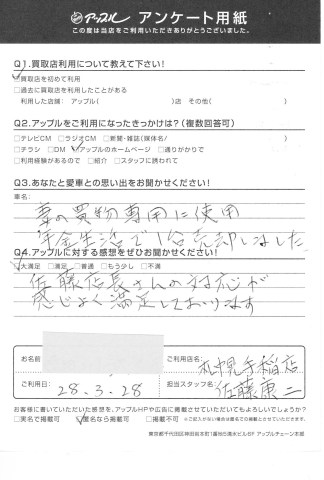 アップル アンケート用紙
この度は当店をご利用いただきありがとうございました。
Q1.買取店利用について教えて下さい!
☑買取店を初めて利用
□過去に買取店を利用したことがある
利用した店舗: アップル( )店 その他( )
Q2.アップルをご利用になったきっかけは?(複数回答可)
□テレビCM □ラジオCM □新聞・雑誌(媒体名/ )
□チラシ □DM ☑アップルのホームページ □通りがかりで
□利用経験があるので □紹介 □スタッフに誘われて
Q3.あなたと愛車との思い出をお聞かせください!
車名:
妻の買物専用に使用
年金生活で1台売却しました
Q4.アップルに対する感想をぜひお聞かせください!
☑大満足 □満足 □普通 □もう少し □不満
佐藤店長さんの対応が
感じよく満足しております
お名前
ご利用店名: 札幌手稲店
ご利用日: 28.3.28
担当スタッフ名: 佐藤康二
お客様に書いていただいた感想を、アップルHPや広告に掲載させていただいてもよろしいでしょうか?
□実名で掲載可 ☑匿名なら掲載可 □掲載不可 ※ご記入がない場合は匿名にて掲載とさせていただきます。
東京都千代田区神田岩本町1番地 アップルチェーン本部